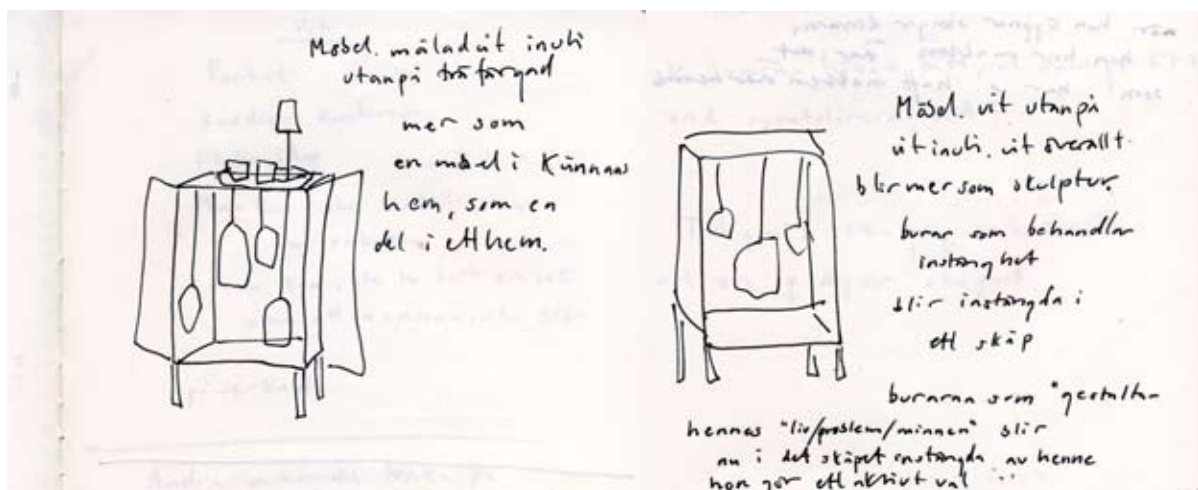 Möbel. målad vit inuti
utanpå träfärgad
mer som
en möbel i Kvinnans
hem, som en
del i ett hem.
när hon
som
Möbel. vit utanpå
vit inuti. vit överallt.
blir mer som skulptur.
burar som behandlar
instänghet
blir instängda i
ett skåp
burarna som "gestaltar
hennes "liv/problem/minnen" blir
nu i det skåpet instängda av henne
hon gör ett aktivt val